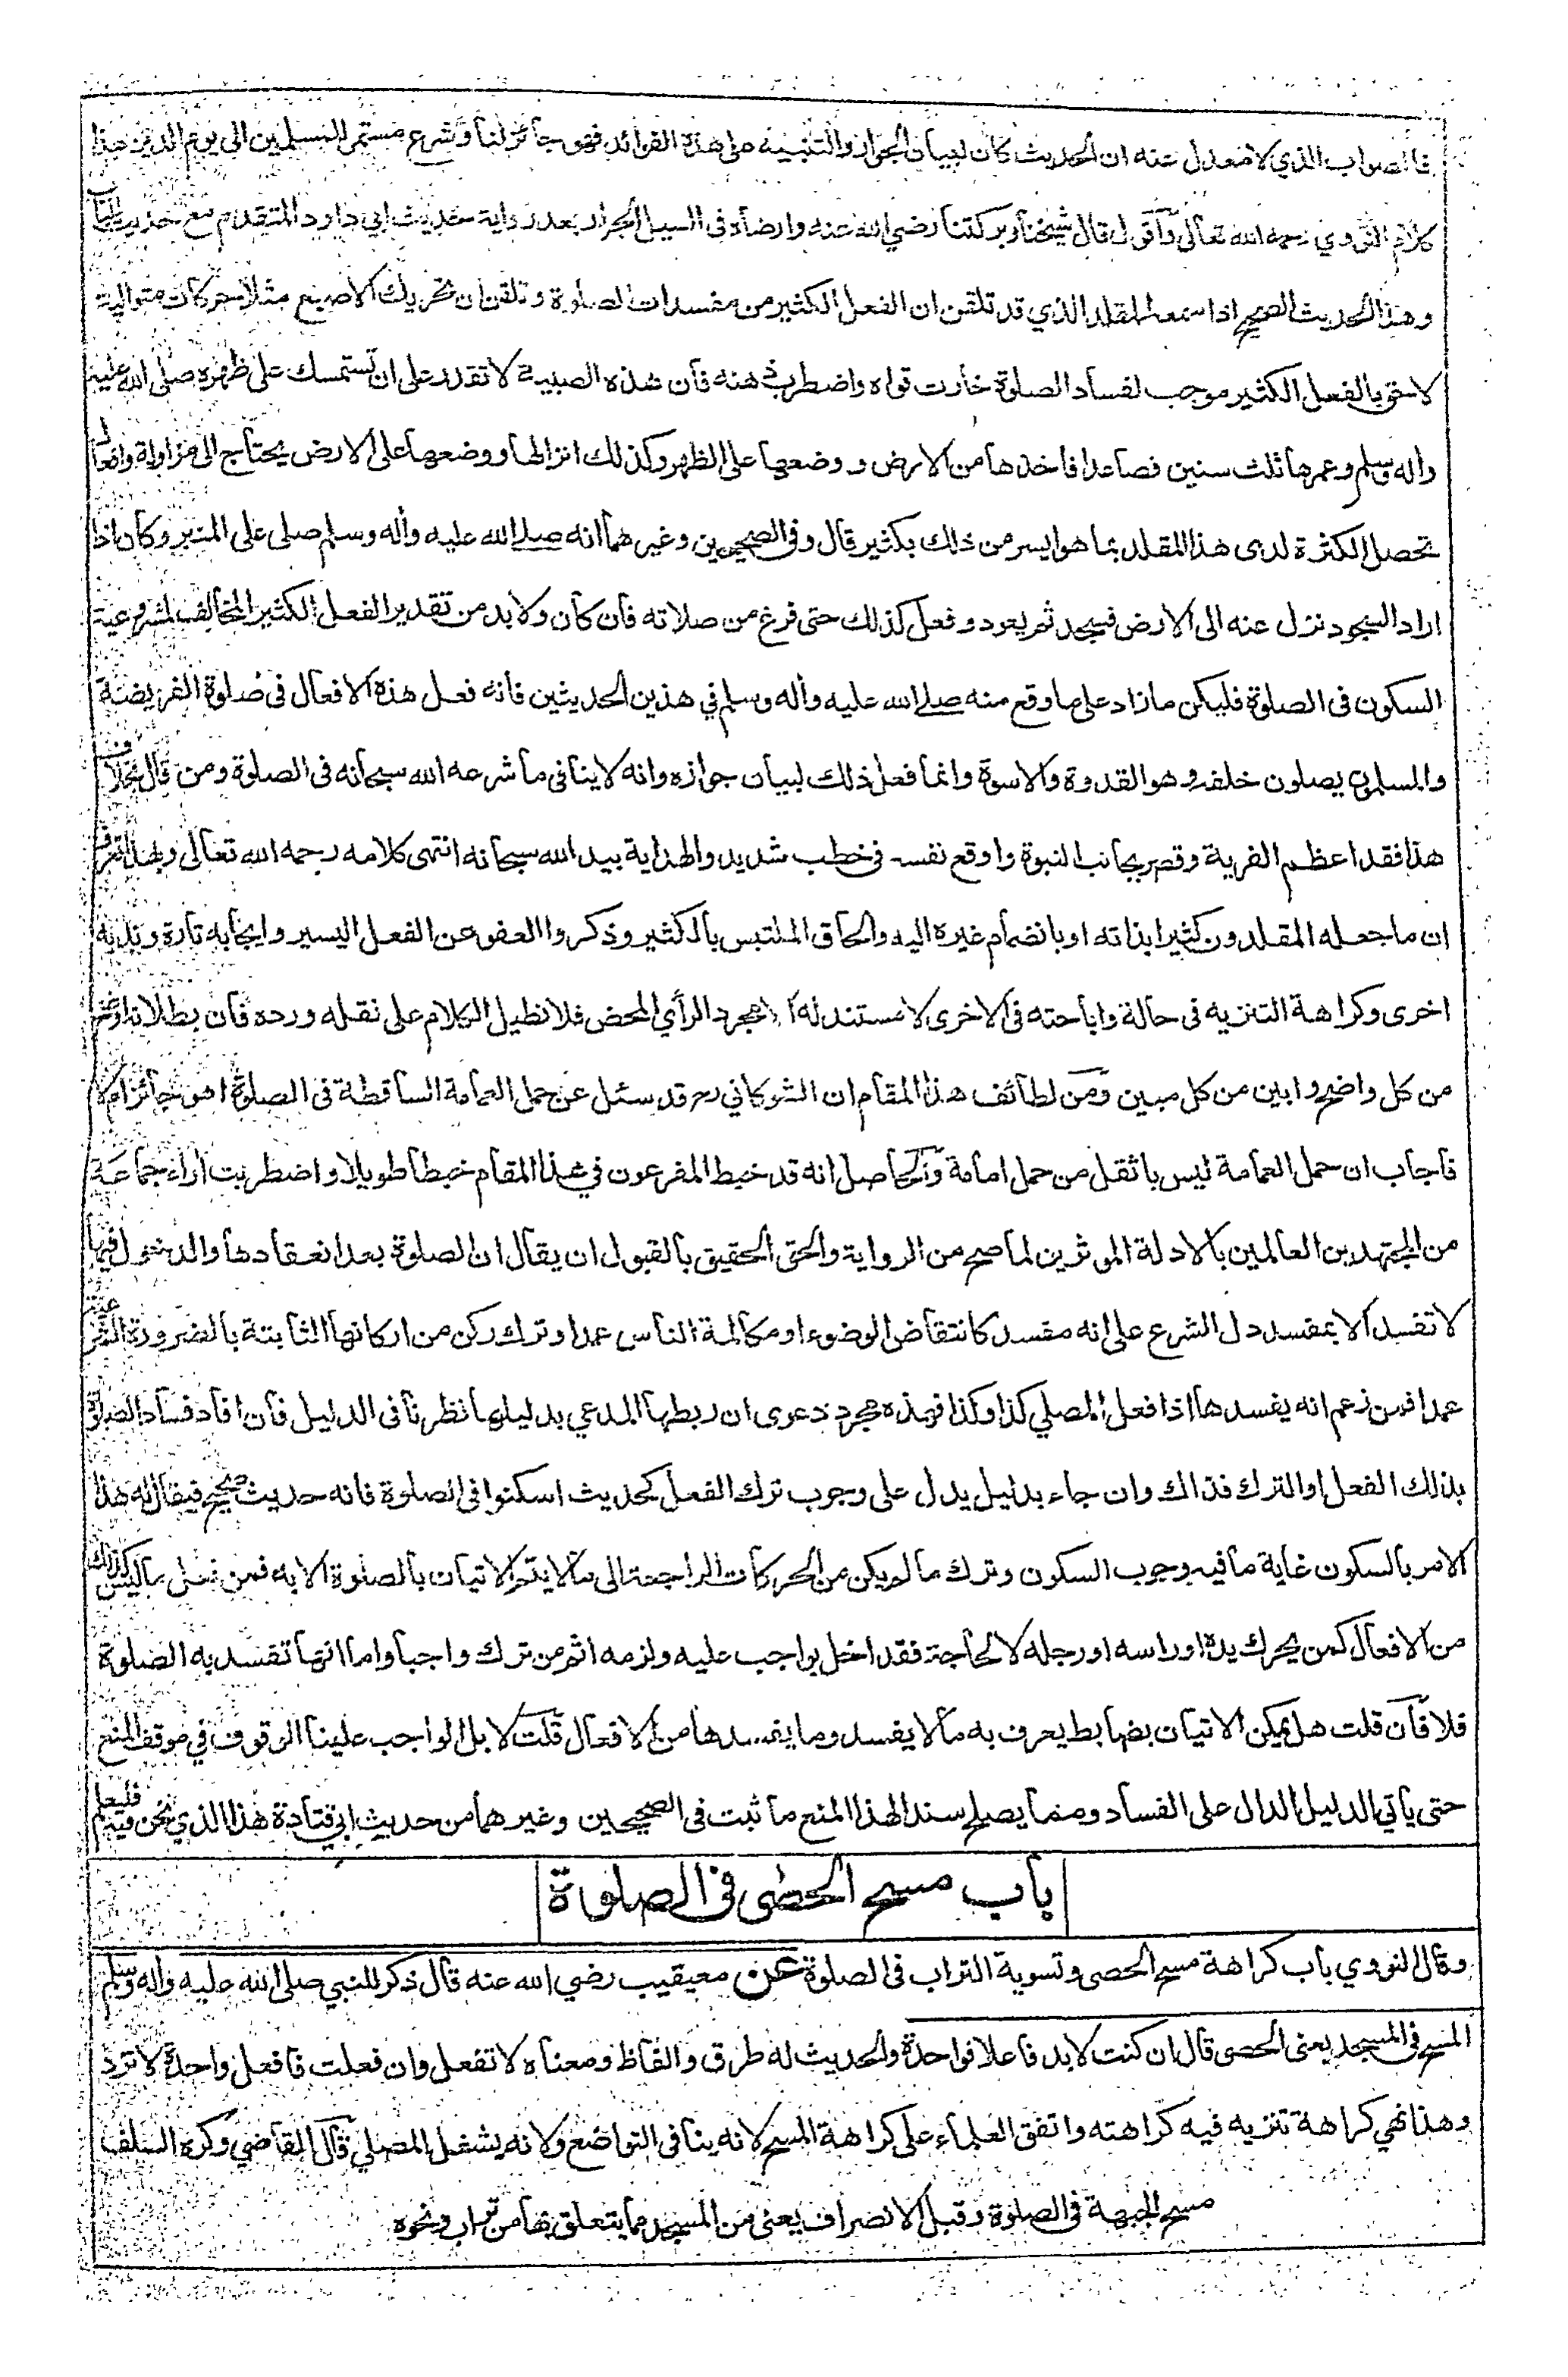 فالصواب الذي لا معدل عنه ان الحديث كان لبيان الجواز والتنبيه على هذه الفوائد فهو جائز لنا وشرع مستمر للمسلمين الى يوم الدين هذا
كلام النووي رحمه الله تعالى وأقول قال شيخنا وبركتنا رضي الله عنه وارضاه فى السيل الجرار بعد رواية حديث ابي داود المتقدم مع حديث الباب
وهذا الحديث الصحيح اذا سمعه المقلد الذي قد تلقن ان الفعل الكثير من مفسدات الصلوة وتلقن ان تحريك الاصبع مثلا حركات متوالية
لاحق بالفعل الكثير موجب لفساد الصلوة خارت قواه واضطرب ذهنه فأن هذه الصبية لا تقدر على ان تستمسك على ظهره صلى الله عليه
واله وسلم وعمرها ثلث سنين فصاعدا فاخذها من الارض ووضعها على الظهر وكذلك انزالها ووضعها على الارض يحتاج الى مزاولة وافعال
تحصل الكثرة لدى هذا المقلد بما هو ايسر من ذلك بكثير قال وفى الصحيحين وغيرهما انه صلى الله عليه واله وسلم صلى على المنبر وكان اذا
اراد السجود نزل عنه الى الارض فسجد ثم يعود وفعل كذلك حتى فرغ من صلاته فأن كان ولا بد من تقدير الفعل الكثير المخالف لمشروعية
السكون فى الصلوة فليكن ما زاد على ما وقع منه صلى الله عليه واله وسلم في هذين الحديثين فانه فعل هذه الافعال فى صلوة الفريضة
والمسلمون يصلون خلفه وهو القدوة والاسوة وانما فعل ذلك لبيان جوازه وانه لا ينافى ما شرعه الله سبحانه فى الصلوة ومن قال بخلاف
هذا فقد اعظم الفرية وقصر بجانب النبوة واوقع نفسه فى خطب شديد والهداية بيد الله سبحانه انتهى كلامه رحمه الله تعالى وبهذا تعرف
ان ما جعله المقلدون كثيرا بذاته او بانضمام غيره اليه والحاق الملتبس بالكثير وذكروا العفو عن الفعل اليسير وايجابه تارة وندبه
اخرى وكراهة التنزيه فى حالة واباحته فى الاخرى لا مستند له الا مجرد الرأي المحض فلا نطيل الكلام على نقله ورده فأن بطلانه اوضح
من كل واضح وابين من كل مبين ومن لطائف هذا المقام ان الشوكاني رح قد سئل عن حمل العمامة الساقطة فى الصلوة اهو جائز ام لا
فأجاب ان حمل العمامة ليس باثقل من حمل امامة والحاصل انه قد خبط المفرعون في هذا المقام خبطا طويلا واضطربت اراء جماعة
من المجتهدين العالمين بالادلة الموثرين لما صح من الرواية والحق الحقيق بالقبول ان يقال ان الصلوة بعد انعقادها والدخول فيها
لا تفسد الا بمفسد دل الشرع على انه مفسد كانتقاض الوضوء او مكالمة الناس عمدا وترك ركن من اركانها الثابتة بالضرورة الشرعية
عمدا فمن زعم انه يفسدها اذا فعل المصلي كذا وكذا فهذه مجرد دعوى ان ربطها المدعي بدليلها نظرنا فى الدليل فأن افاد فساد الصلوة
بذلك الفعل او الترك فذاك وان جاء بدليل يدل على وجوب ترك الفعل كحديث اسكنوا فى الصلوة فانه حديث صحيح فيقال له هذا
الامر بالسكون غاية ما فيه وجوب السكون وترك ما لم يكن من الحركات الراجعة الى ما لا يتم الاتيان بالصلوة الا به فمن فعل ما ليس كذلك
من الافعال كمن يحرك يده او راسه او رجله لا لحاجة فقد اخل بواجب عليه ولزمه اثم من ترك واجبا واما انها تفسد به الصلوة
فلا فأن قلت هل يمكن الاتيان بضابط يعرف به ما لا يفسد وما يفسدها من الافعال قلت لا بل الواجب علينا الوقوف في موقف المنع
حتى يأتي الدليل الدال على الفساد ومما يصلح سندا لهذا المنع ما ثبت فى الصحيحين وغيرهما من حديث ابي قتادة هذا الذي نحن فيه فليعلم
باب مسح الحصى فى الصلوة
وقال النووي باب كراهة مسح الحصى وتسوية التراب فى الصلوة عن معيقيب رضي الله عنه قال ذكر للنبي صلى الله عليه واله وسلم
المسح فى المسجد يعنى الحصى قال ان كنت لا بد فاعلا فواحدة والحديث له طرق والفاظ ومعناه لا تفعل وان فعلت فافعل واحدة لا تزد
وهذا نهي كراهة تنزيه فيه كراهته واتفق العلماء على كراهة المسح لانه ينافى التواضع ولانه يشغل المصلي قال القاضي وكره السلف
مسح الجبهة فى الصلوة وقبل الانصراف يعنى من المسجد مما يتعلق بها من تراب ونحوه